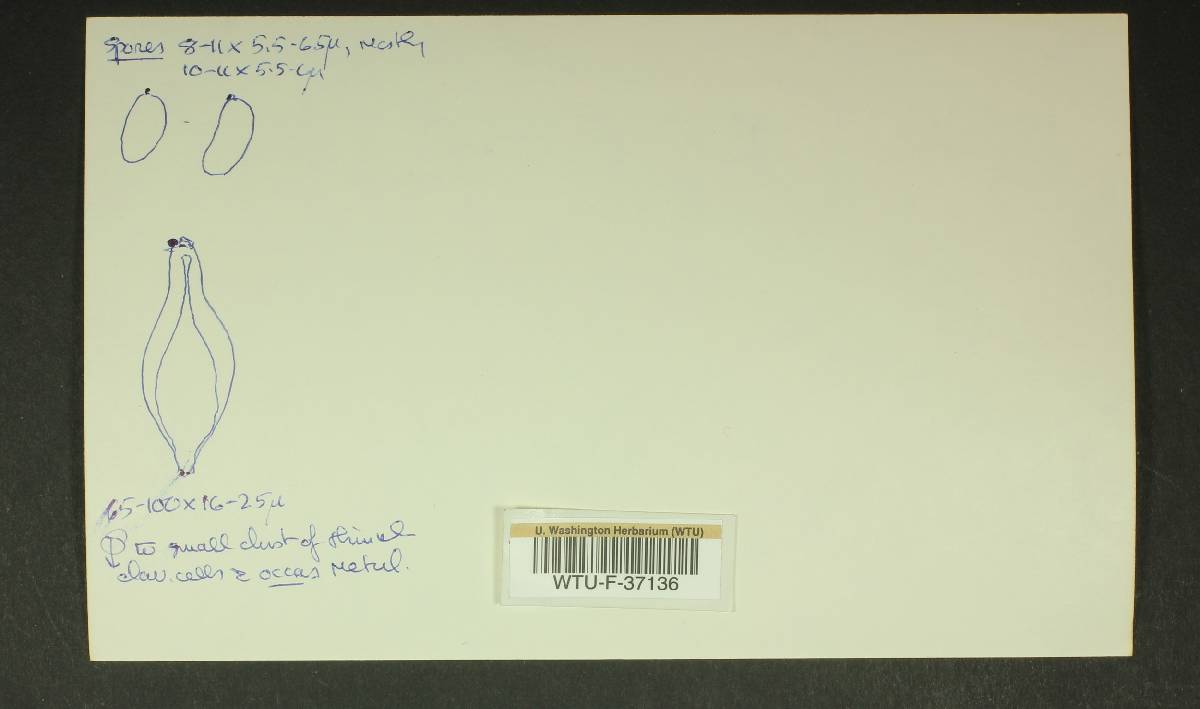 Spores 8-11 x 5.5-6.5µ, mostly
10-11 x 5.5-6µ
65-100 x 16-25µ
to small clust of thin wl
clav. cells c̄ occas metul.
U. Washington Herbarium (WTU)
WTU-F-37136